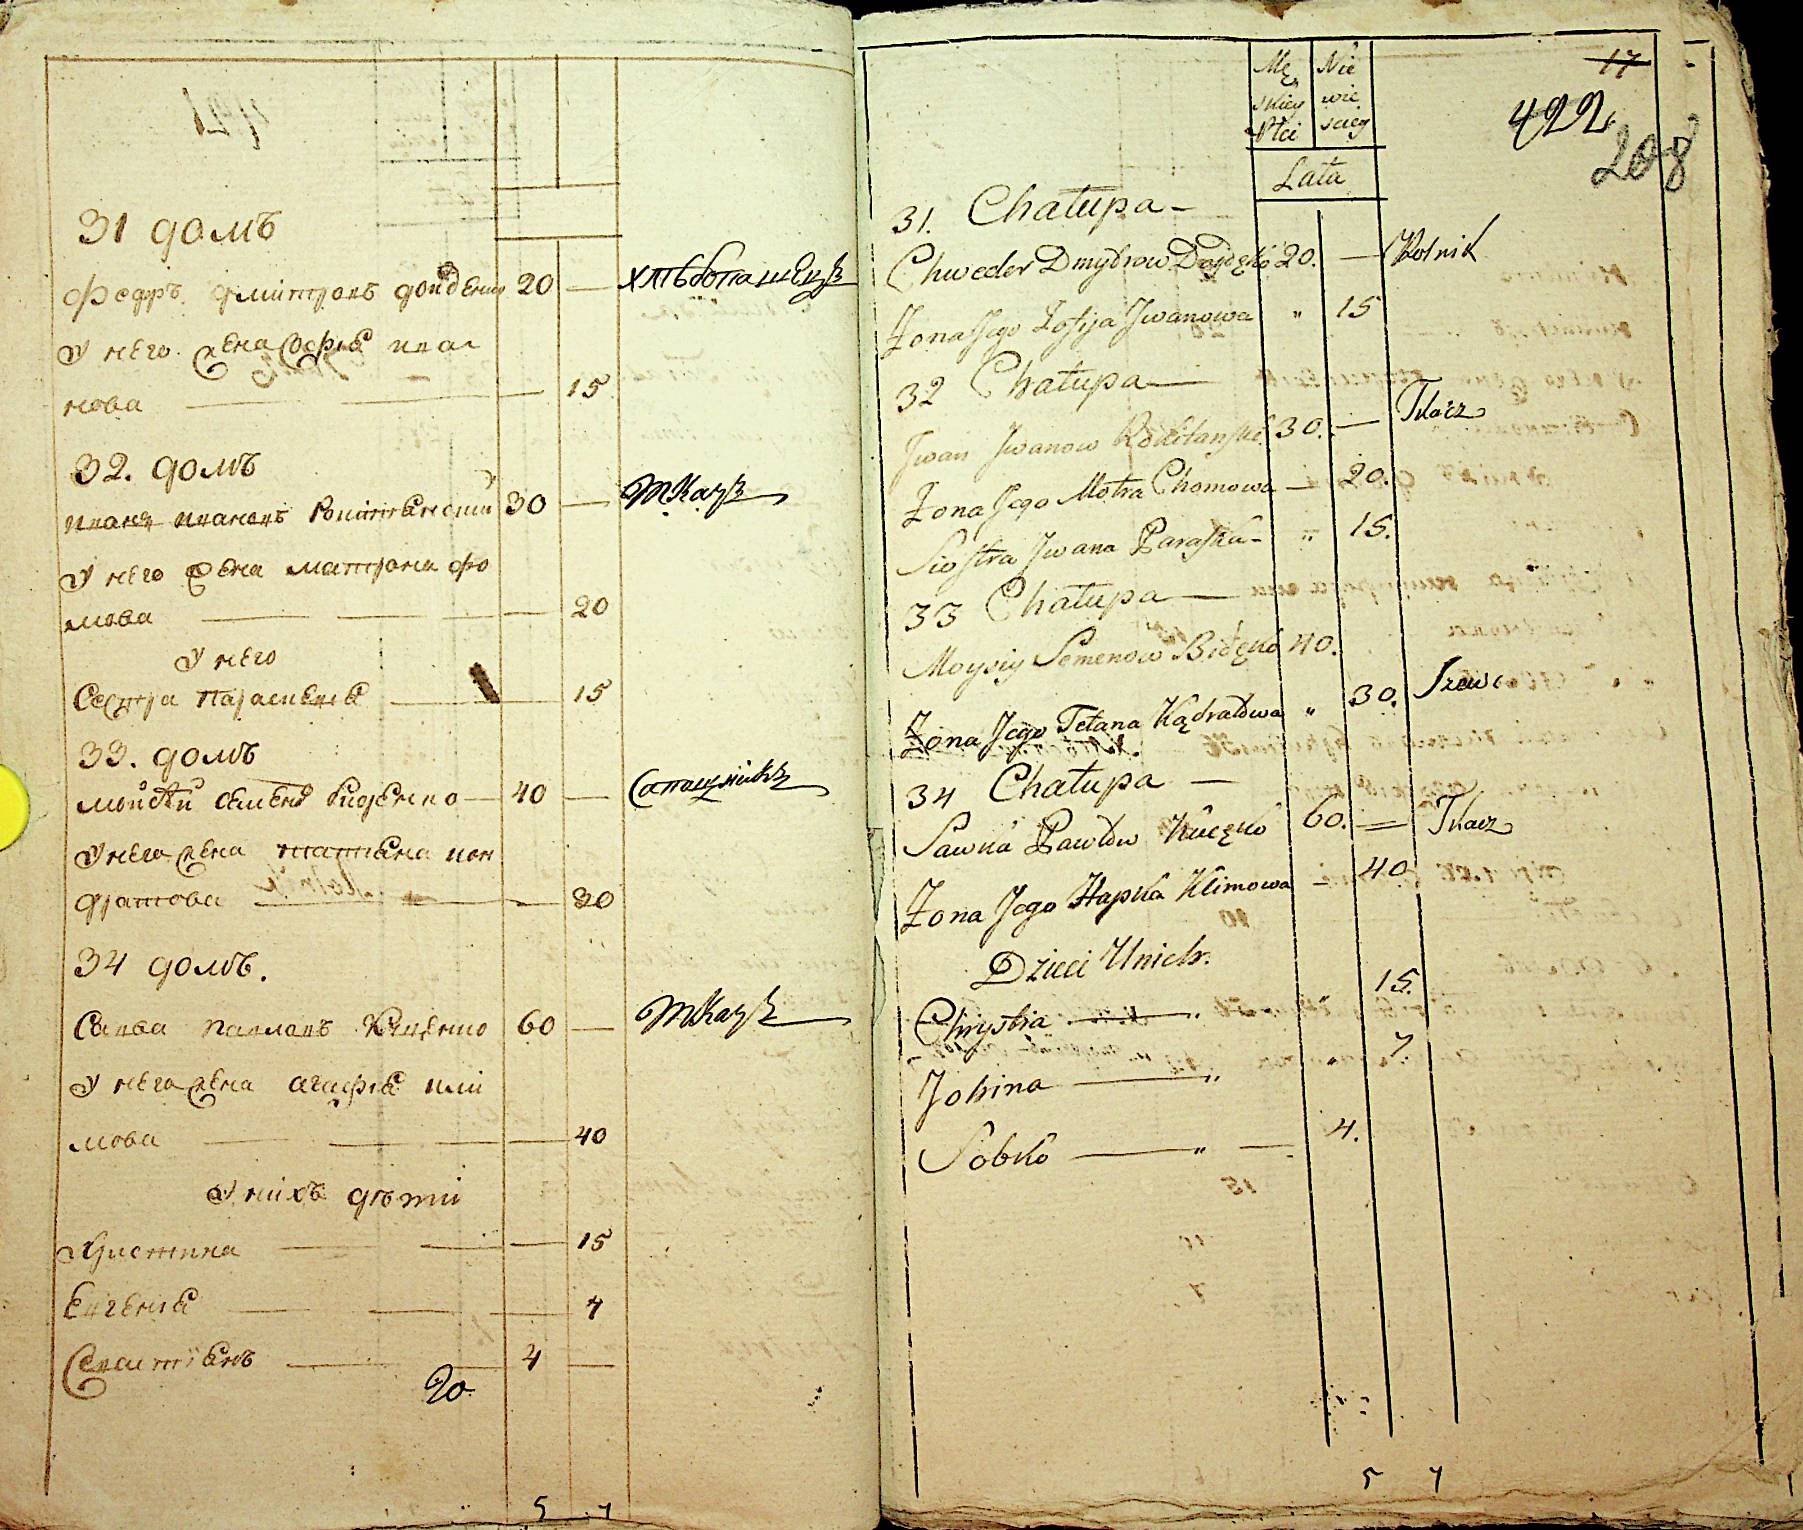 31 домъ
Федръ дмитровъ дойденко 20 — хлѣбопашецъ
У него жена Софиѣ ива
нова — 15
32. домъ
иванъ ивановъ 30 — ткачъ
У него жена матрона фо
мова — 20
У него
Сестра параскевиѣ — 15
33. домъ
мойсѣй семеновъ биденко — 40 — Сапожникъ
У него жена татиѣна кон
дратова — 30
34 домъ.
Савва павловъ 60 — ткачъ
У него жена агафиѣ кли
мова — 40
У нихъ дѣти
Христина — 15
Евгениѣ — 7
Севастиѣнъ — 4 —
20
5 7
Mę Nie
skiey wie
Płci sciey
Lata
17
422
208
31. Chałupa —
Chweder Dmytrow Dojdęko 20. — Rolnik
Żona Jego Zofija Jwanowa " 15
32 Chałupa —
Jwan Jwanow 30. — Tkacz
Żona Jego Motra Chomowa — 20.
Siostra Jwana Paraska — " 15.
33 Chałupa —
Moysiy Semenow Bidęko 40.
Żona Jego Tetana Kądratowa " 30. Szewc
34 Chałupa —
Sawka Pawłow 60. — Tkacz
Żona Jego Hapka Klimowa — 40
Dzieci Unich.
Chrystia — " " 15.
Johina — " " 7.
Sobko — " — 4.
5 7